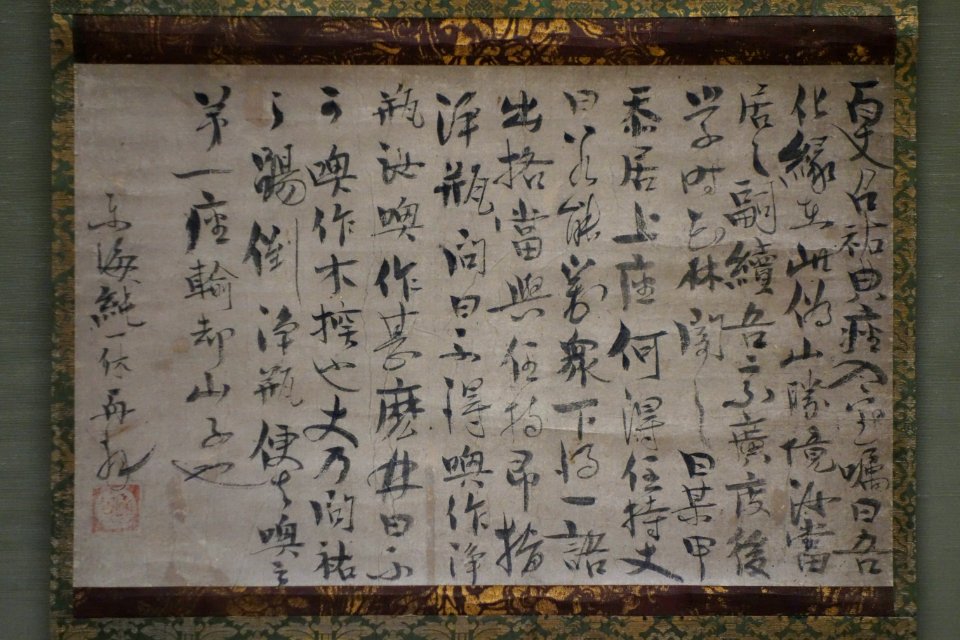 百丈召祐典座入室囑曰吾
化縁在此溈山勝境汝當
居之嗣續吾宗廣度後
学時花林聞之曰某甲
忝居上座何得住持丈
曰若能對衆下得一語
出格當與住持即指
浄瓶問曰不得喚作浄
瓶汝喚作甚麽林曰不
可喚作木㮈也丈乃問祐
々踢倒浄瓶便丈喚云
第一座輸却山子也
東海純一休